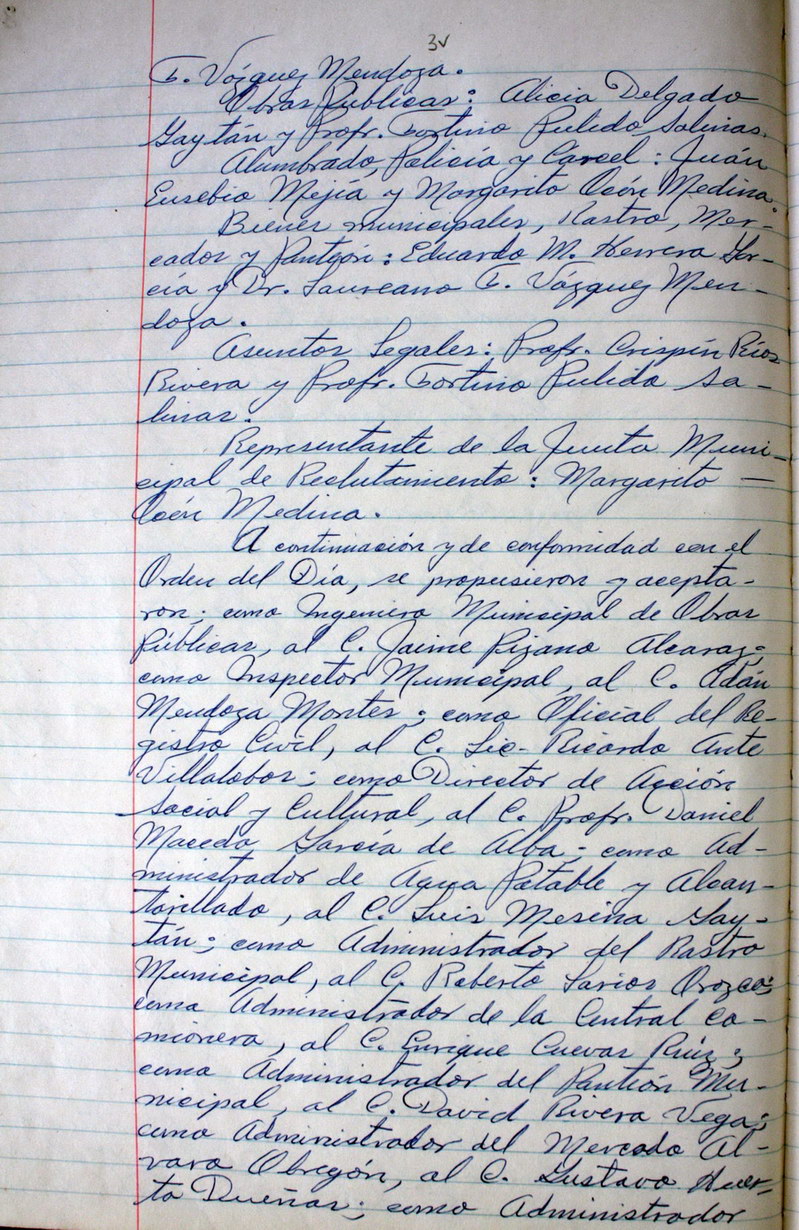 3v
T. Vázquez Mendoza.
Obras Públicas: Alicia Delgado
Gaytán y Profr. Fortino Pulido Salinas.
Alumbrado, Policía y Cárcel: Juán
Eusebio Mejía y Margarito León Medina.
Bienes municipales, Rastro, Mer-
cados y Panteón: Eduardo M. Herrera Gar-
cía y Dr. Laureano T. Vázquez Men-
doza.
Asuntos Legales: Profr. Crispín Ríos
Rivera y Profr. Fortino Pulido Sa-
linas.
Representante de la Junta Muni-
cipal de Reclutamiento: Margarito —
León Medina.
A continuación y de conformidad con el
Orden del Día, se propusieron y acepta-
ron; como Ingeniero Municipal de Obras
Públicas, al C. Jaime Pizano Alcaraz;
como Inspector Municipal, al C. Adán
Mendoza Montes; como Oficial del Re-
gistro Civil, al C. Lic. Ricardo Ante
Villalobos; como Director de Acción
Social y Cultural, al C. Profr. Daniel
Macedo García de Alba; como Ad-
ministrador de Agua Potable y Alcan-
tarillado, al C. Luis Mesina Gay-
tán; como Administrador del Rastro
Municipal, al C. Roberto Larios Orozco;
como Administrador de la Central Ca-
mionera, al C. Enrique Cuevas Ruíz;
como Administrador del Panteón Mu-
nicipal, al C. David Rivera Vega;
como Administrador del Mercado Al-
varo Obregón, al C. Gustavo Huer-
ta Dueñas; como Administrador